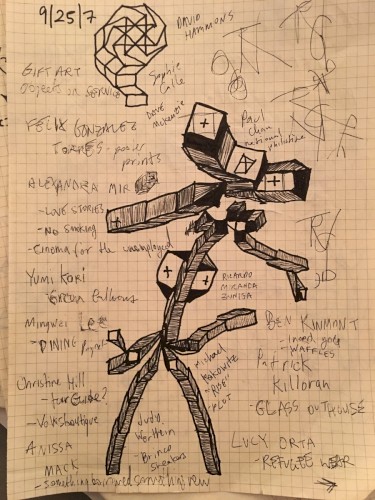 9/25/7
DAVID
HAMMONS
GIFT ART
object or SERVICE
Sophie
Calle
DAVE
McKenzie
FELIX GONZALEZ
TORRES - poster
prints
Paul
Chan
national
philistine
ALEXANDRA MIR
- LOVE STORIES
- NO SMOKING
- Cinema for the unemployed
YUMI KORI
RICARDO
MIRANDA
ZUNIGA
Mingwei LEE
- DINING Project
BEN KINMONT
- I need you
- WAFFLES
Michael
Rakowitz
Patrick
Killoran
- GLASS OUTHOUSE
Christine Hill
- tour Guide?
- Volksboutique
Judy
Werthein
- Brinco
Sneakers
LUCY ORTA
- REFUGEE WEAR
ANISSA
MACK
- Something borrowed something new